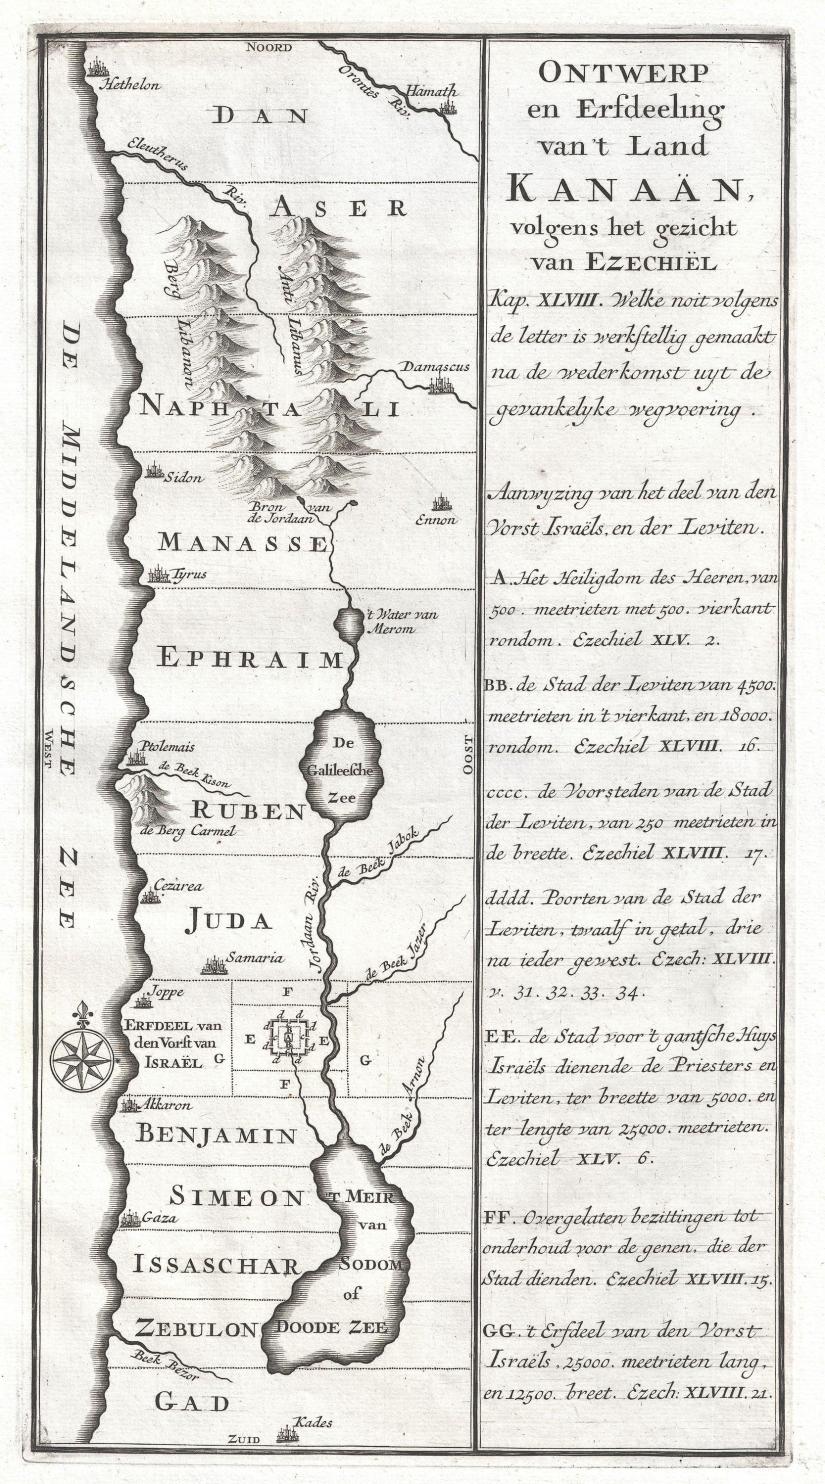 NOORD
Hethelon
Orontes Riv.
Hamath
DAN
Eleutherus Riv.
ASER
Berg Libanon
Anti Libanus
Damascus
NAPHTALI
Sidon
Bron van
de Jordaan
Ennon
MANASSE
Tyrus
't Water van
Merom
EPHRAIM
DE MIDDELANDSCHE ZEE
WEST
OOST
Ptolemais
de Beek Kison
De
Galileesche
Zee
RUBEN
de Berg Carmel
de Beek Jabok
Cezarea
JUDA
Jordaan Riv.
Samaria
de Beek Jazer
Joppe
F
ERFDEEL van
den Vorst van
ISRAËL G
d d
d d
E c A c E
B
d d
d d
G
F
de Beek Arnon
Akkaron
BENJAMIN
SIMEON
'T MEIR
van
Gaza
ISSASCHAR
SODOM
of
ZEBULON
DOODE ZEE
Beek Bezor
GAD
Kades
ZUID
ONTWERP
en Erfdeeling
van 't Land
KANAÄN,
volgens het gezicht
van EZECHIËL
Kap. XLVIII. Welke noit volgens
de letter is werkstellig gemaakt
na de wederkomst uyt de
gevankelyke wegvoering.
Aanwyzing van het deel van den
Vorst Israëls, en der Leviten.
A. Het Heiligdom des Heeren, van
500. meetrieten met 500. vierkant
rondom. Ezechiel XLV. 2.
BB. de Stad der Leviten van 4500.
meetrieten in 't vierkant, en 18000.
rondom. Ezechiel XLVIII. 16.
cccc. de Voorsteden van de Stad
der Leviten, van 250 meetrieten in
de breette. Ezechiel XLVIII. 17.
dddd. Poorten van de Stad der
Leviten, twaalf in getal, drie
na ieder gewest. Ezech: XLVIII.
v. 31. 32. 33. 34.
EE. de Stad voor 't gantsche Huys
Israëls dienende de Priesters en
Leviten, ter breette van 5000. en
ter lengte van 25000. meetrieten.
Ezechiel XLV. 6.
FF. Overgelaten bezittingen tot
onderhoud voor de genen, die der
Stad dienden. Ezechiel XLVIII. 15.
GG. 't Erfdeel van den Vorst
Israëls, 25000. meetrieten lang,
en 12500. breet. Ezech: XLVIII. 21.